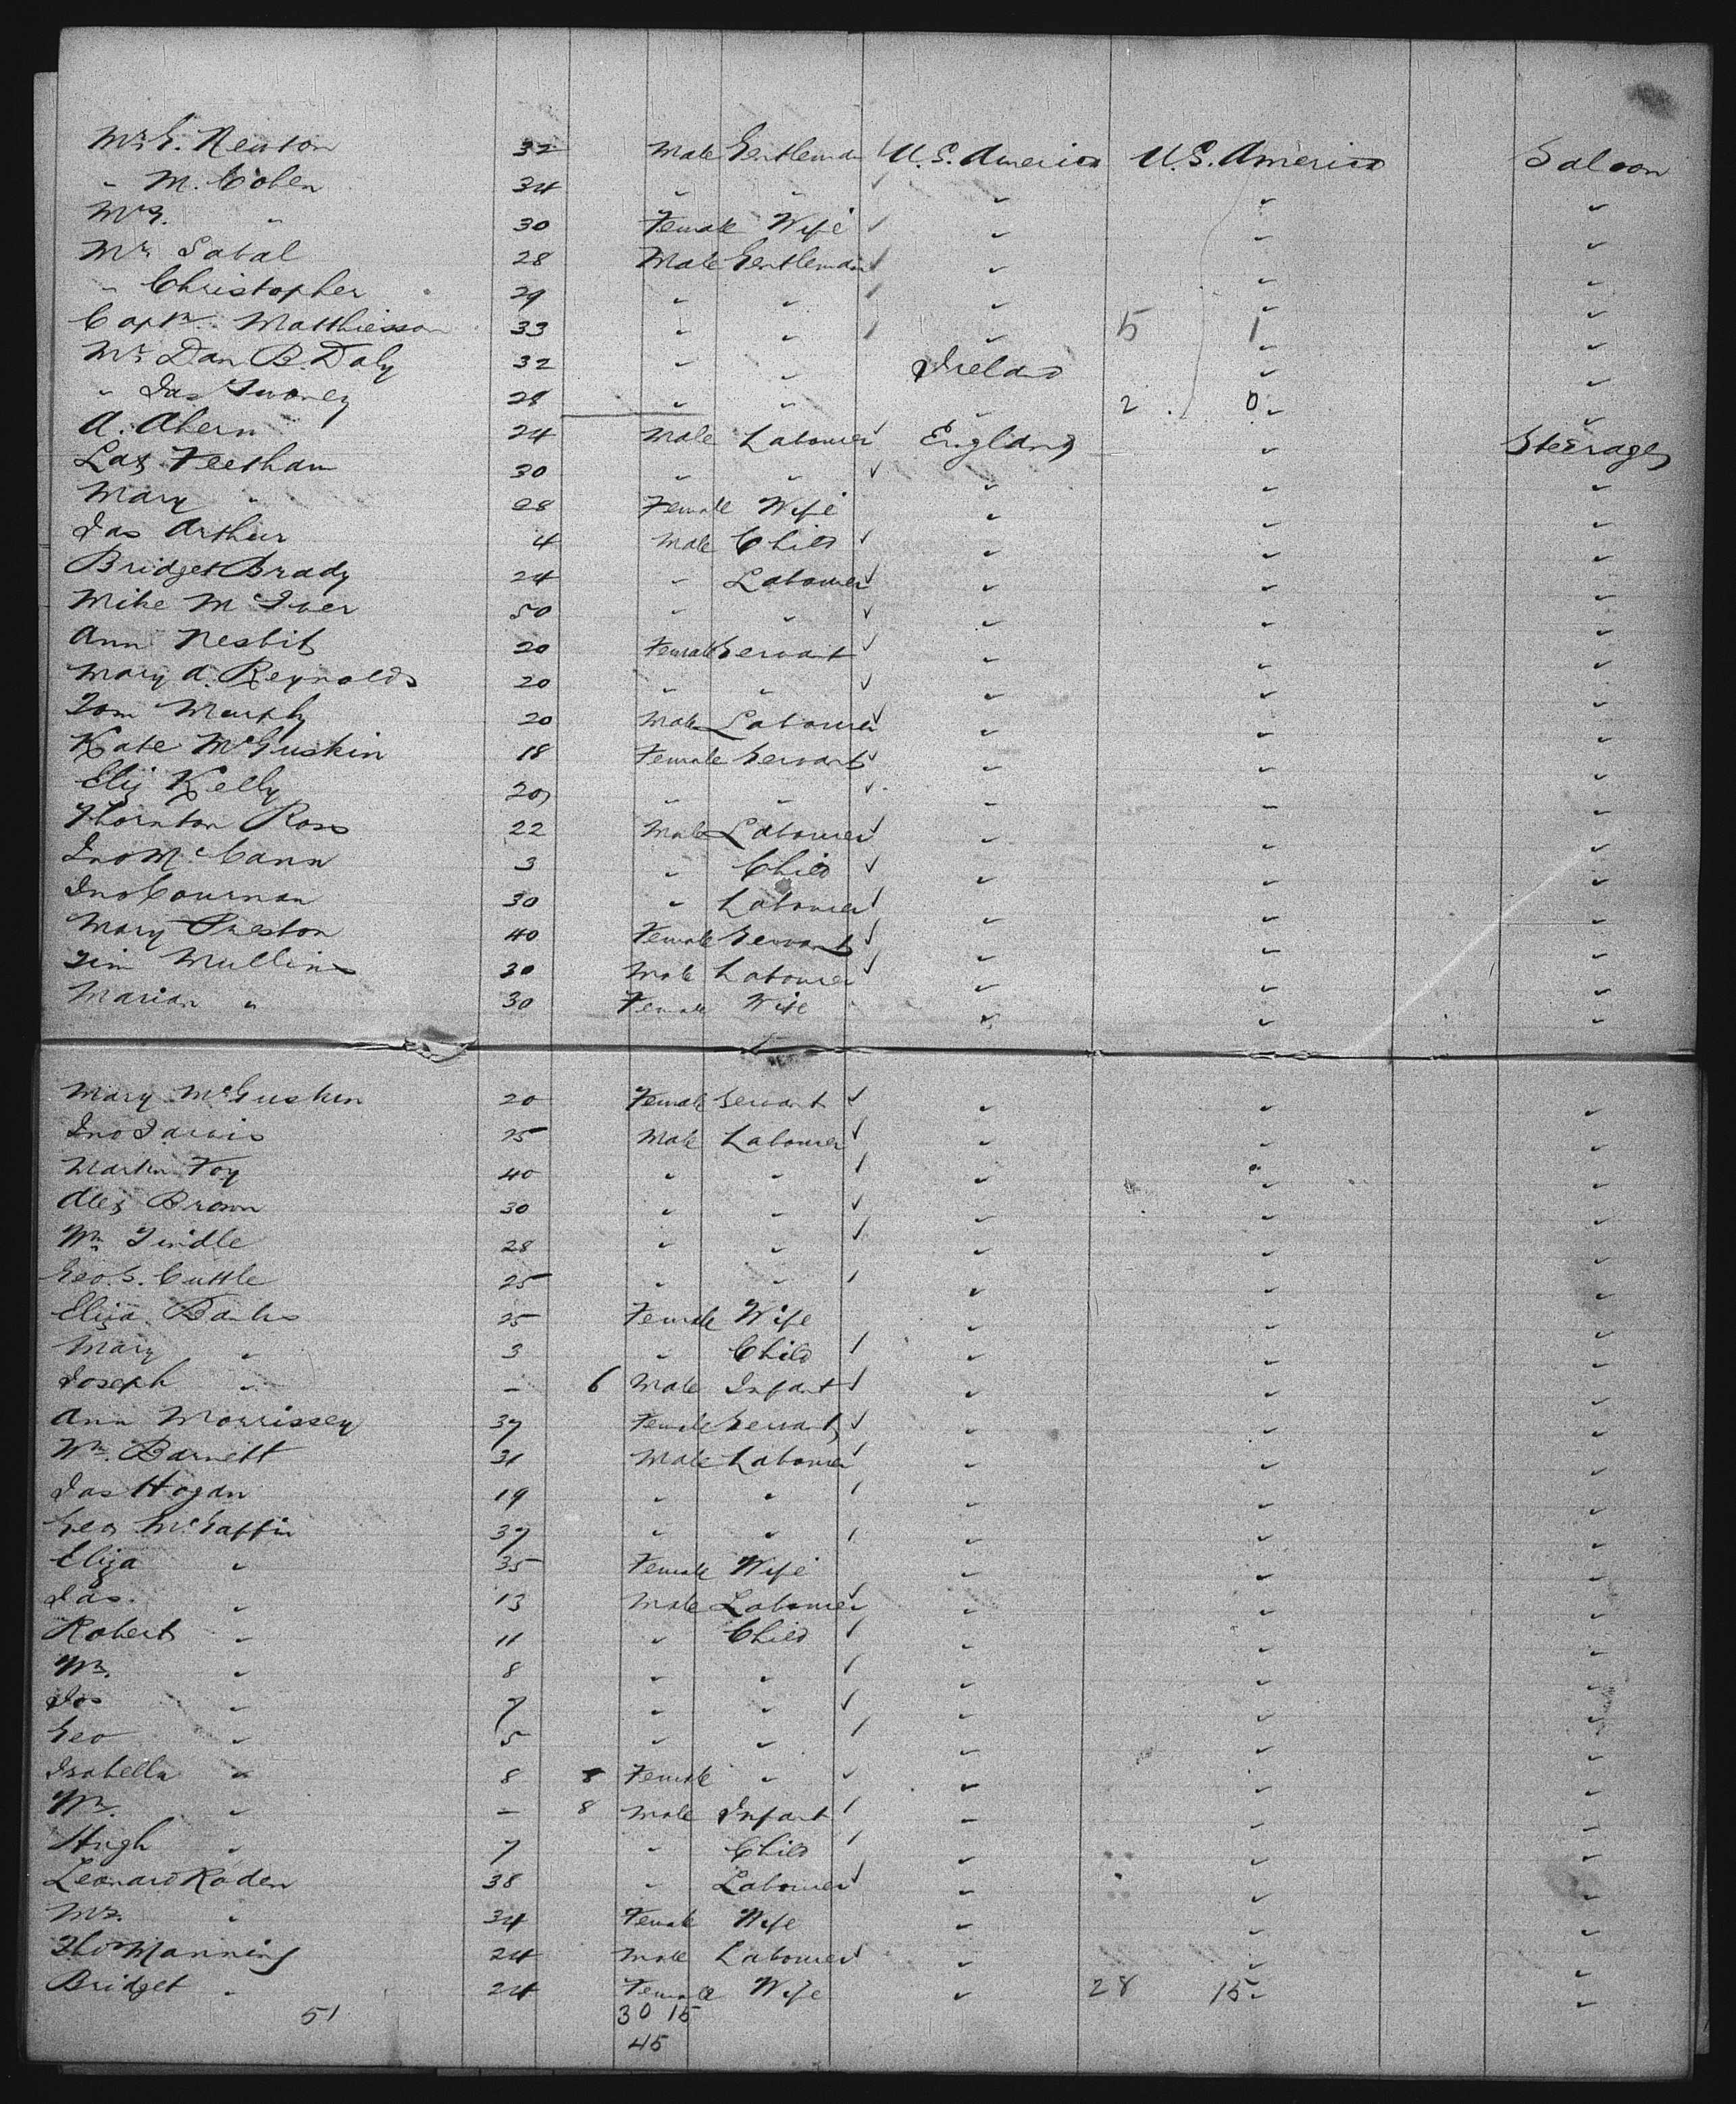 Mr. G. Newton 32 Male Gentleman U.S. America U.S. America Saloon
" M. Cohen 34 " " " " "
Mrs. " 30 Female Wife " " "
Mr. Sabal 28 Male Gentleman " " "
" Christopher 29 " " " " "
Captn. Matthiesson 33 " " " 5 1 " "
Mr. Dan B. Daly 32 " " Ireland " "
" Jas Twomey 28 " " " 2 0 " "
A. Ahern 24 Male Labourer England " Steerage
Laz Feetham 30 " " " " "
Mary " 28 Female Wife " " "
Jas Arthur 4 Male Child " " "
Bridget Brady 24 " Labourer " " "
Mike McIver 50 " " " " "
Ann Nesbit 20 Female Servant " " "
Mary A. Reynolds 20 " " " " "
Tom Murphy 20 Male Labourer " " "
Kate McGuskin 18 Female Servant " " "
Eliz Kelly 20 " " " " "
Thornton Ross 22 Male Labourer " " "
Jno McCann 3 " Child " " "
Jno Cournan 30 " Labourer " " "
Mary Preston 40 Female Servant " " "
Tim Mullins 30 Male Labourer " " "
Marian " 30 Female Wife " " "
Mary McGusken 20 Female Servant " " "
Jno Jarvis 25 Male Labourer " " "
Martin Foy 40 " " " " "
Alex Brown 30 " " " " "
Wm Tindle 28 " " " " "
Geo. S. Cuttle 25 " " " " "
Eliza Banks 25 Female Wife " " "
Mary " 3 " Child " " "
Joseph " — 6 Male Infant " " "
Ann Morrissey 37 Female Servant " " "
Wm. Barnett 31 Male Labourer " " "
Jas Hogan 19 " " " " "
Geo McGaffin 37 " " " " "
Eliza " 35 Female Wife " " "
Jas. " 13 Male Labourer " " "
Robert " 11 " Child " " "
Wm. " 8 " " " " "
Jos " 7 " " " " "
Geo " 5 " " " " "
Isabella " 8 Female " " " "
Wm. " — 8 Male Infant " " "
Hugh " 7 " Child " " "
Leonard Roden 38 " Labourer " " "
Mrs. " 34 Female Wife " " "
Tho Manning 24 Male Labourer " " "
Bridget " 24 Female Wife " 28 15 " "
51 30 15
45